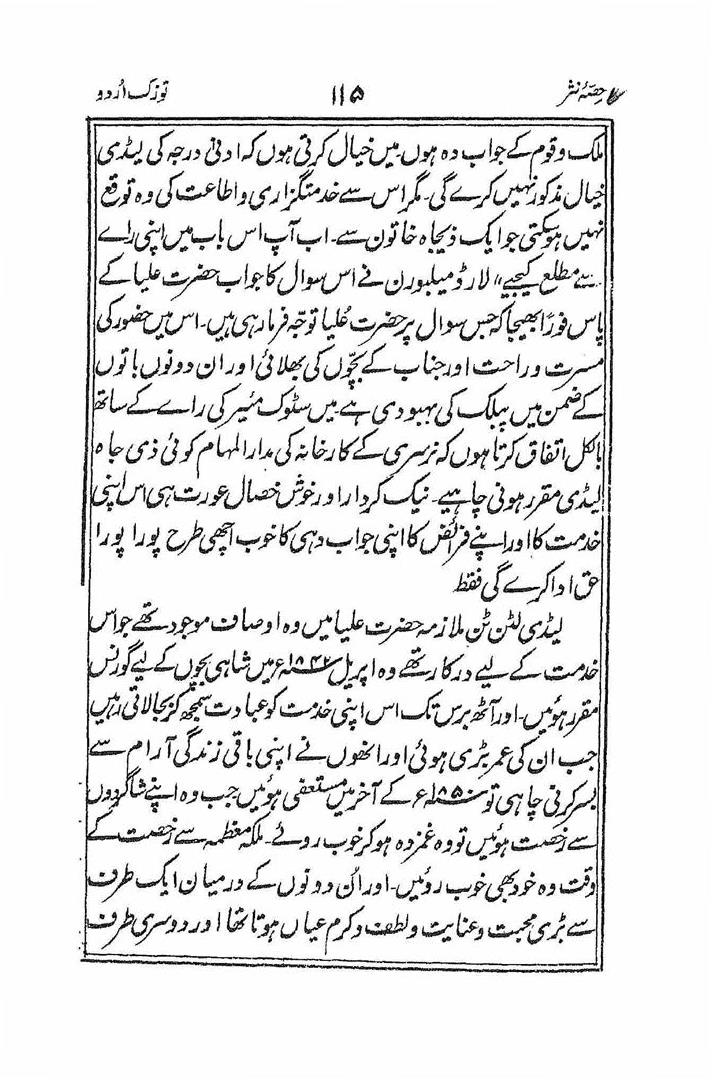 حصۂ نثر ۱۱۵ توزک اُردو
ملک و قوم کے جواب دہ ہوں میں خیال کرتی ہوں کہ ادنیٰ درجہ کی لیڈی
خیال مذکور نہیں کرے گی۔ مگر اس سے خدمتگزاری و اطاعت کی وہ توقع
نہیں ہوسکتی جو ایک ذیجاہ خاتون سے۔ اب آپ اس باب میں اپنی راے
سے مطلع کیجیے" لارڈ میلبورن نے اس سوال کا جواب حضرت علیا کے
پاس فوراً بھیجا کہ جس سوال پر حضرت عُلیا توجّہ فرما رہی ہیں۔ اس میں حضور کی
مسرت و راحت اور جناب کے بچّوں کی بھلائی اور ان دونوں باتوں
کے ضمن میں پبلک کی بہبودی ہے۔ میں سٹوک مئیر کی راے کے ساتھ
بالکل اتفاق کرتا ہوں کہ نرسری کے کارخانہ کی مدارالمہام کوئی ذی جاہ
لیڈی مقرر ہونی چاہیے۔ نیک کردار اور خوش خصال عورت ہی اس اپنی
خدمت کا اور اپنے فرائض کا اپنی جواب دہی کا خوب اچھی طرح پورا پورا
حق ادا کرے گی فقط
لیڈی لٹن ٹن ملازمہ حضرت علیا میں وہ اوصاف موجود تھے جو اس
خدمت کے لیے درکار تھے وہ اپریل ۱۸۴۲ء میں شاہی بچوں کے لیے گورنس
مقرر ہوئیں۔ اور آٹھ برس تک اس اپنی خدمت کو عبادت سمجھ کر بجا لاتی رہیں
جب ان کی عمر بڑی ہوئی اور انھوں نے اپنی باقی زندگی آرام سے
بسر کرنی چاہی تو ۱۸۵۰ء کے آخر میں مستعفی ہوئیں جب وہ اپنے شاگردوں
سے رخصت ہوئیں تو وہ غمزدہ ہو کر خوب روئے۔ ملکہ معظمہ سے رخصت کے
وقت وہ خود بھی خوب روئیں۔ اور اُن دونوں کے درمیان ایک طرف
سے بڑی محبت و عنایت و لطف و کرم عیاں ہوتا تھا اور دوسری طرف